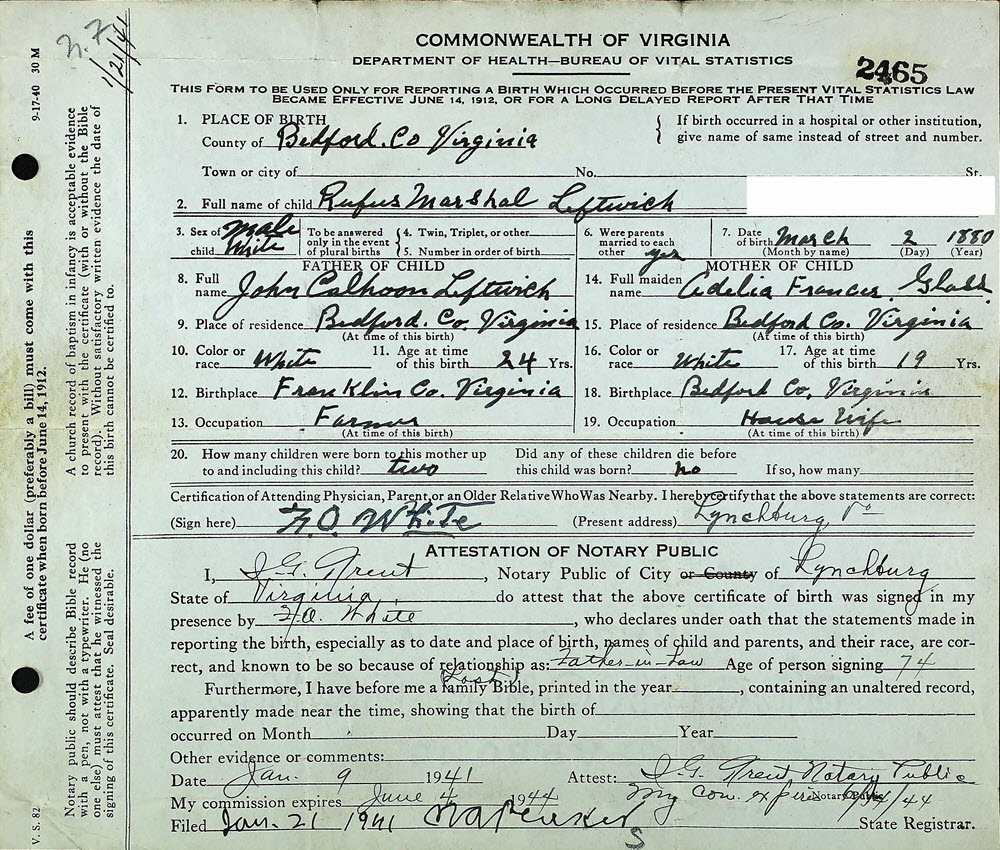 N. F.
1/21/41
COMMONWEALTH OF VIRGINIA
DEPARTMENT OF HEALTH—BUREAU OF VITAL STATISTICS
2465
THIS FORM TO BE USED ONLY FOR REPORTING A BIRTH WHICH OCCURRED BEFORE THE PRESENT VITAL STATISTICS LAW
BECAME EFFECTIVE JUNE 14, 1912, OR FOR A LONG DELAYED REPORT AFTER THAT TIME
1. PLACE OF BIRTH
County of Bedford. Co Virginia
If birth occurred in a hospital or other institution,
give name of same instead of street and number.
Town or city of No. St.
2. Full name of child Rufus Marshal Leftwich
3. Sex of child Male White
To be answered only in the event of plural births
4. Twin, Triplet, or other
5. Number in order of birth
6. Were parents married to each other yes
7. Date of birth March 2 1880
(Month by name) (Day) (Year)
FATHER OF CHILD
8. Full name John Calhoon Leftwich
9. Place of residence Bedford. Co. Virginia
(At time of this birth)
10. Color or race White 11. Age at time of this birth 24 Yrs.
12. Birthplace Franklin Co. Virginia
13. Occupation Farmer
(At time of this birth)
MOTHER OF CHILD
14. Full maiden name Adelia Frances Glass
15. Place of residence Bedford Co. Virginia
(At time of this birth)
16. Color or race White 17. Age at time of this birth 19 Yrs.
18. Birthplace Bedford Co, Virginia
19. Occupation House Wife
(At time of this birth)
20. How many children were born to this mother up to and including this child? two
Did any of these children die before this child was born? no If so, how many
Certification of Attending Physician, Parent, or an Older Relative Who Was Nearby. I hereby certify that the above statements are correct:
(Sign here) F. O. White (Present address) Lynchburg, Va
ATTESTATION OF NOTARY PUBLIC
I, , Notary Public of City or County of Lynchburg
State of Virginia, do attest that the above certificate of birth was signed in my
presence by F. O. White, who declares under oath that the statements made in
reporting the birth, especially as to date and place of birth, names of child and parents, and their race, are cor-
rect, and known to be so because of relationship as: Father-in-Law Age of person signing 74
(Lost)
Furthermore, I have before me a family Bible, printed in the year , containing an unaltered record,
apparently made near the time, showing that the birth of
occurred on Month Day Year
Other evidence or comments:
Date Jan. 9 1941 Attest: Notary Public
My commission expires June 4 1944 My Com. expires 6/4/44
Notary Public
Filed Jan. 21 1941 State Registrar.
S
9-17-40 30 M
A church record of baptism in infancy is acceptable evidence
to present with the certificate (with or without the Bible
record). Without satisfactory written evidence the date of
this birth cannot be certified to.
A fee of one dollar (preferably a bill) must come with this
certificate when born before June 14, 1912.
Notary public should describe Bible record
with a pen, not with a typewriter. He (no
one else) must attest that he witnessed the
signing of this certificate. Seal desirable.
V. S. 82